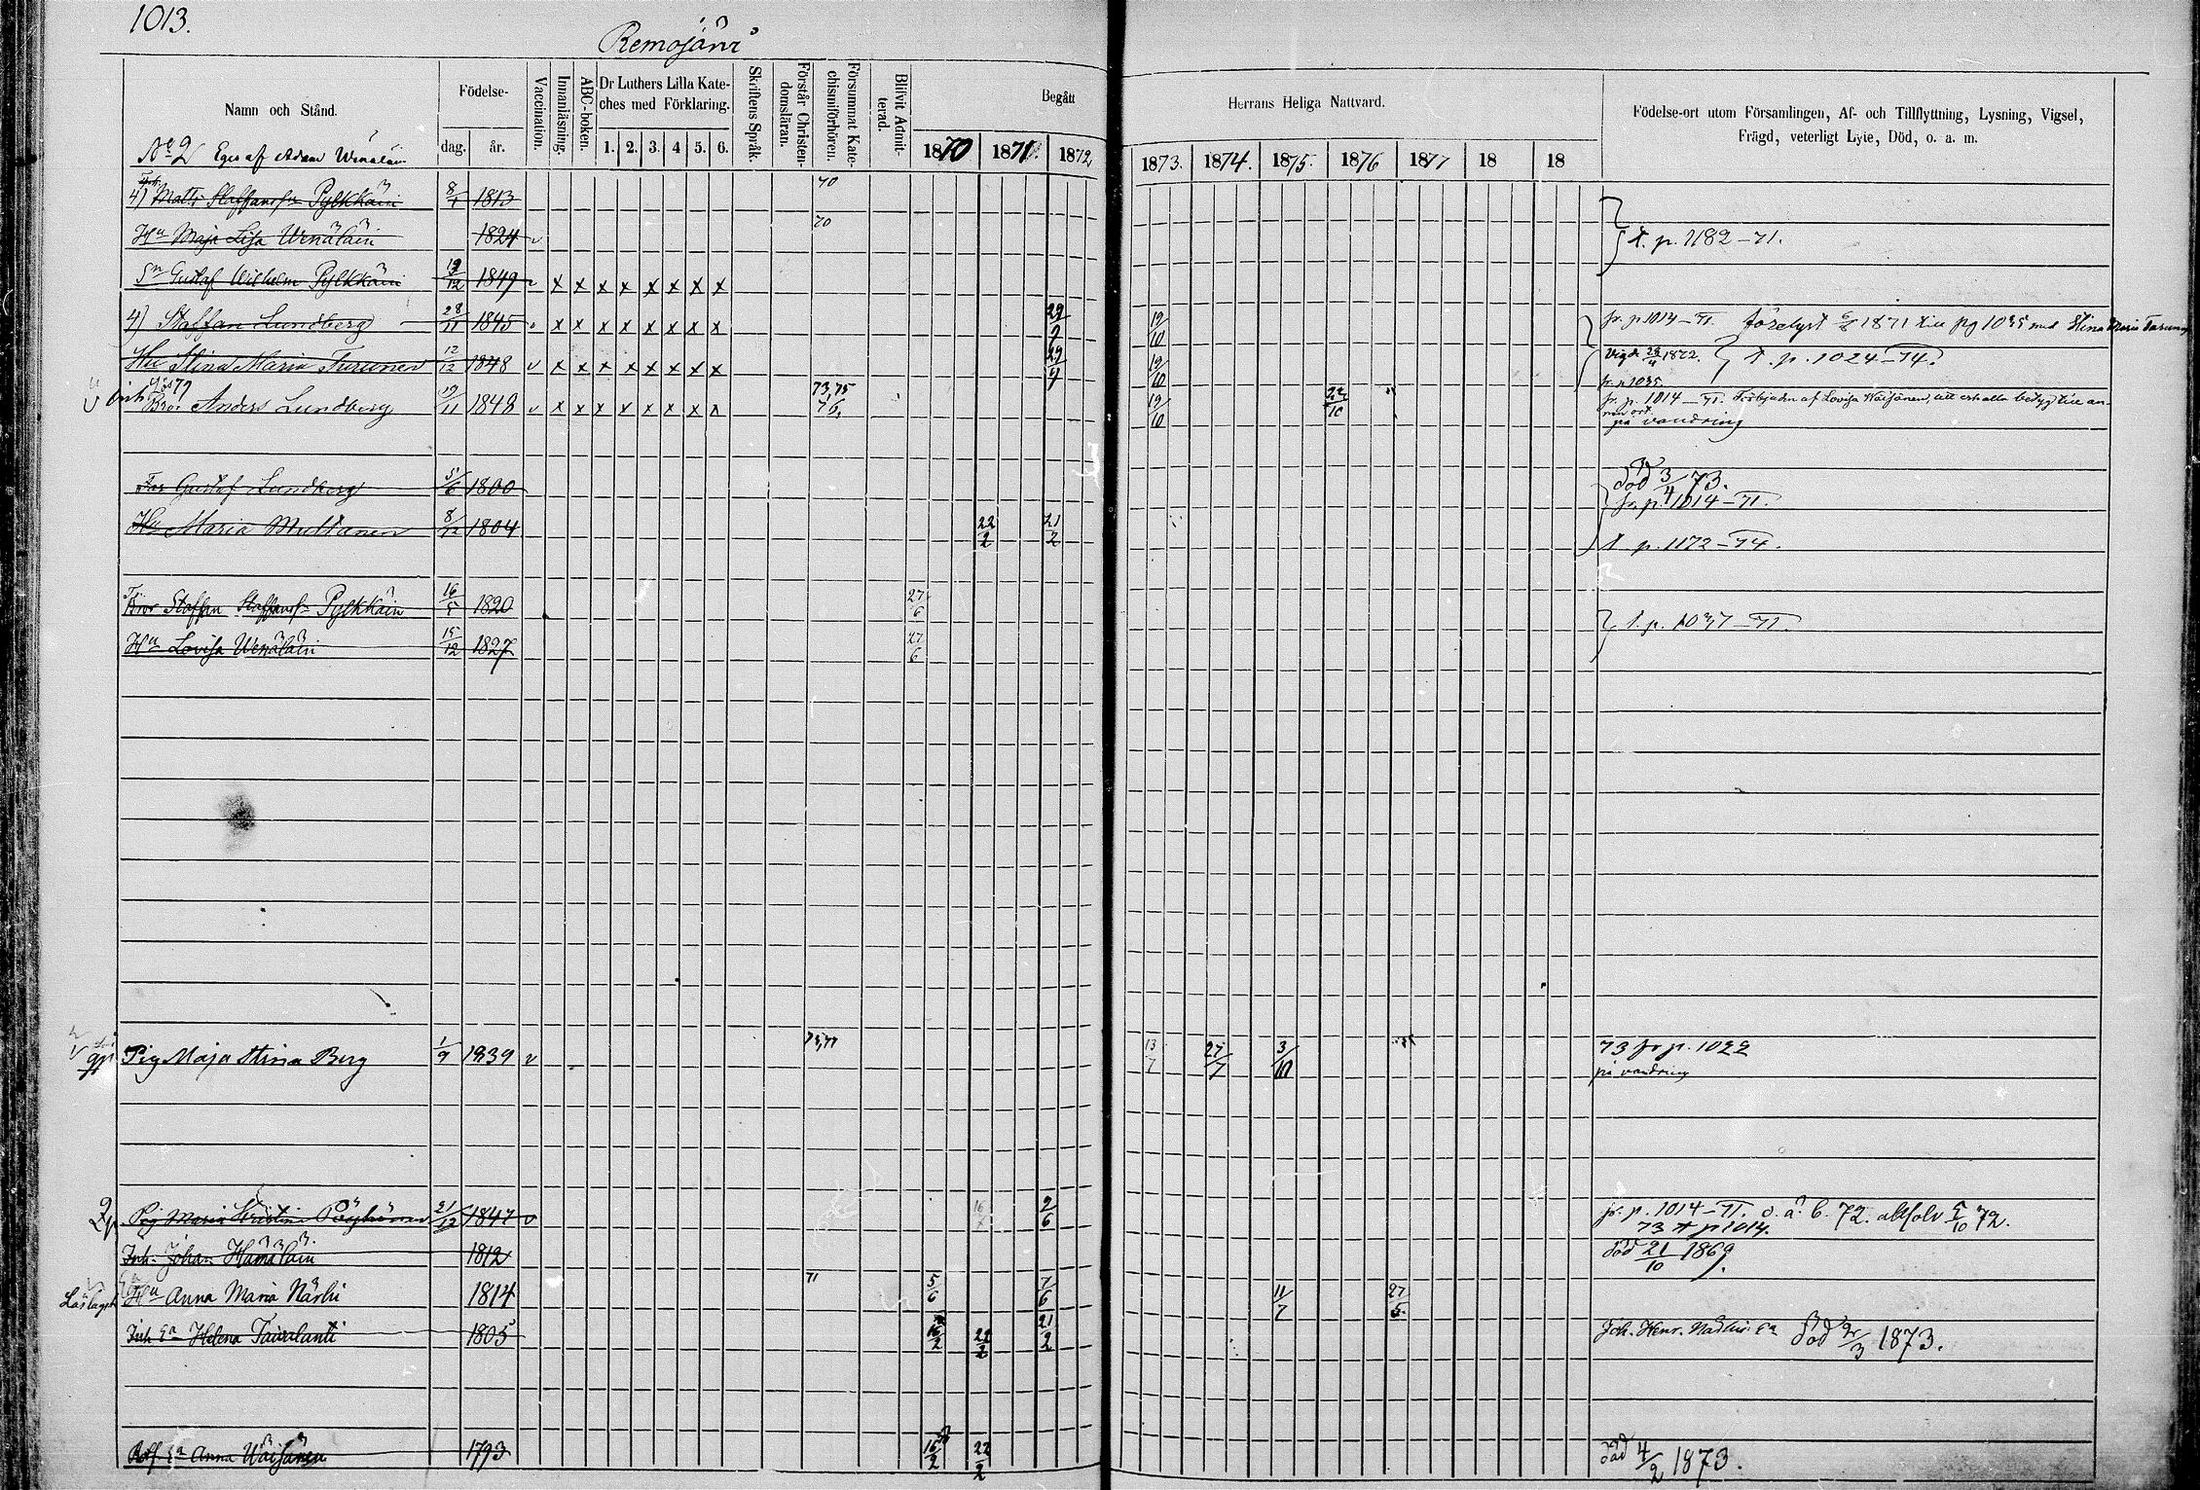 1013.
Remojärvi
Namn och Stånd.
Födelse-
dag.
år.
Vaccination.
Innanläsning.
ABC-boken.
Dr Luthers Lilla Kate-
ches med Förklaring.
1. 2. 3. 4 5. 6.
Skriftens Språk.
Förstår Christen-
domsläran.
Försummat Kate-
chismiförhören.
Blifvit Admit-
terad.
Begått
Herrans Heliga Nattvard.
1870 1871. 1872
1873. 1874. 1875. 1876 1877 18 18
Födelse-ort utom Församlingen, Af- och Tillflyttning, Lysning, Vigsel,
Frägd, veterligt Lyte, Död, o. a. m.
No 2 Eges af Adam Wenäläin
4) Matts Staffanss. Pylkkäin 8/1 1813 70
Hu Maja Lisa Wenäläin 1824 v 70 t. p. 1182-71.
Sn Gustaf Wilhelm Pylkkäin 19/12 1849 v x x x x x x x x
4) Staffan Lundberg 28/11 1845 v x x x x x x x x 29/7 19/10 fr. p. 1014-71. förelyst 1871 till pg 1035 med Stina Maria Turunen
Hu Stina Maria Turunen 12/12 1848 v x x x x x x x x 29/7 19/10 Vigde 1872. t. p. 1024-74.
fr. p 1035.
Bror Anders Lundberg 19/11 1848 v x x x x x x x x 73,75 76, 19/10 22/10 fr. p. 1014-71. Förbjuden af Lovisa Wäisänen, till erhålla betyg till an-
nan ort.
på vandring
Far Gustaf Lundberg 5/6 1800 död 3/4 73.
fr. p. 1014-71.
Hu Maria Multanen 8/12 1804 22/2 21/2 t. p. 1172-74.
Bror Staffan Staffanss. Pylkkäin 16/5 1820 27/6 t. p. 1037-71.
Hu Lovisa Wenäläin 15/12 1827 27/6
Pig Maja Stina Berg 1/9 1839 v 75,77 13/7 27/7 3/10 73 fr p. 1022
på vandring
Pig Maria Kristina 21/12 1847 v 2/6 fr. p. 1014-71. o. ä. b. 72. absolv 5/10 72.
73 t p 1014.
Inh. Johan Hämäläin 1812 död 21/10 1869.
Hu Anna Maria Närhi 1814 71 5/6 7/6 11/7 27/5
Inh Ea Helena Taivalanti 1805 16/2 22/2 21/2 Joh. Henr. Närhis Ea död 1873.
Ea Anna Wäisänen 1793 16/2 22/2 död 4/2 1873.